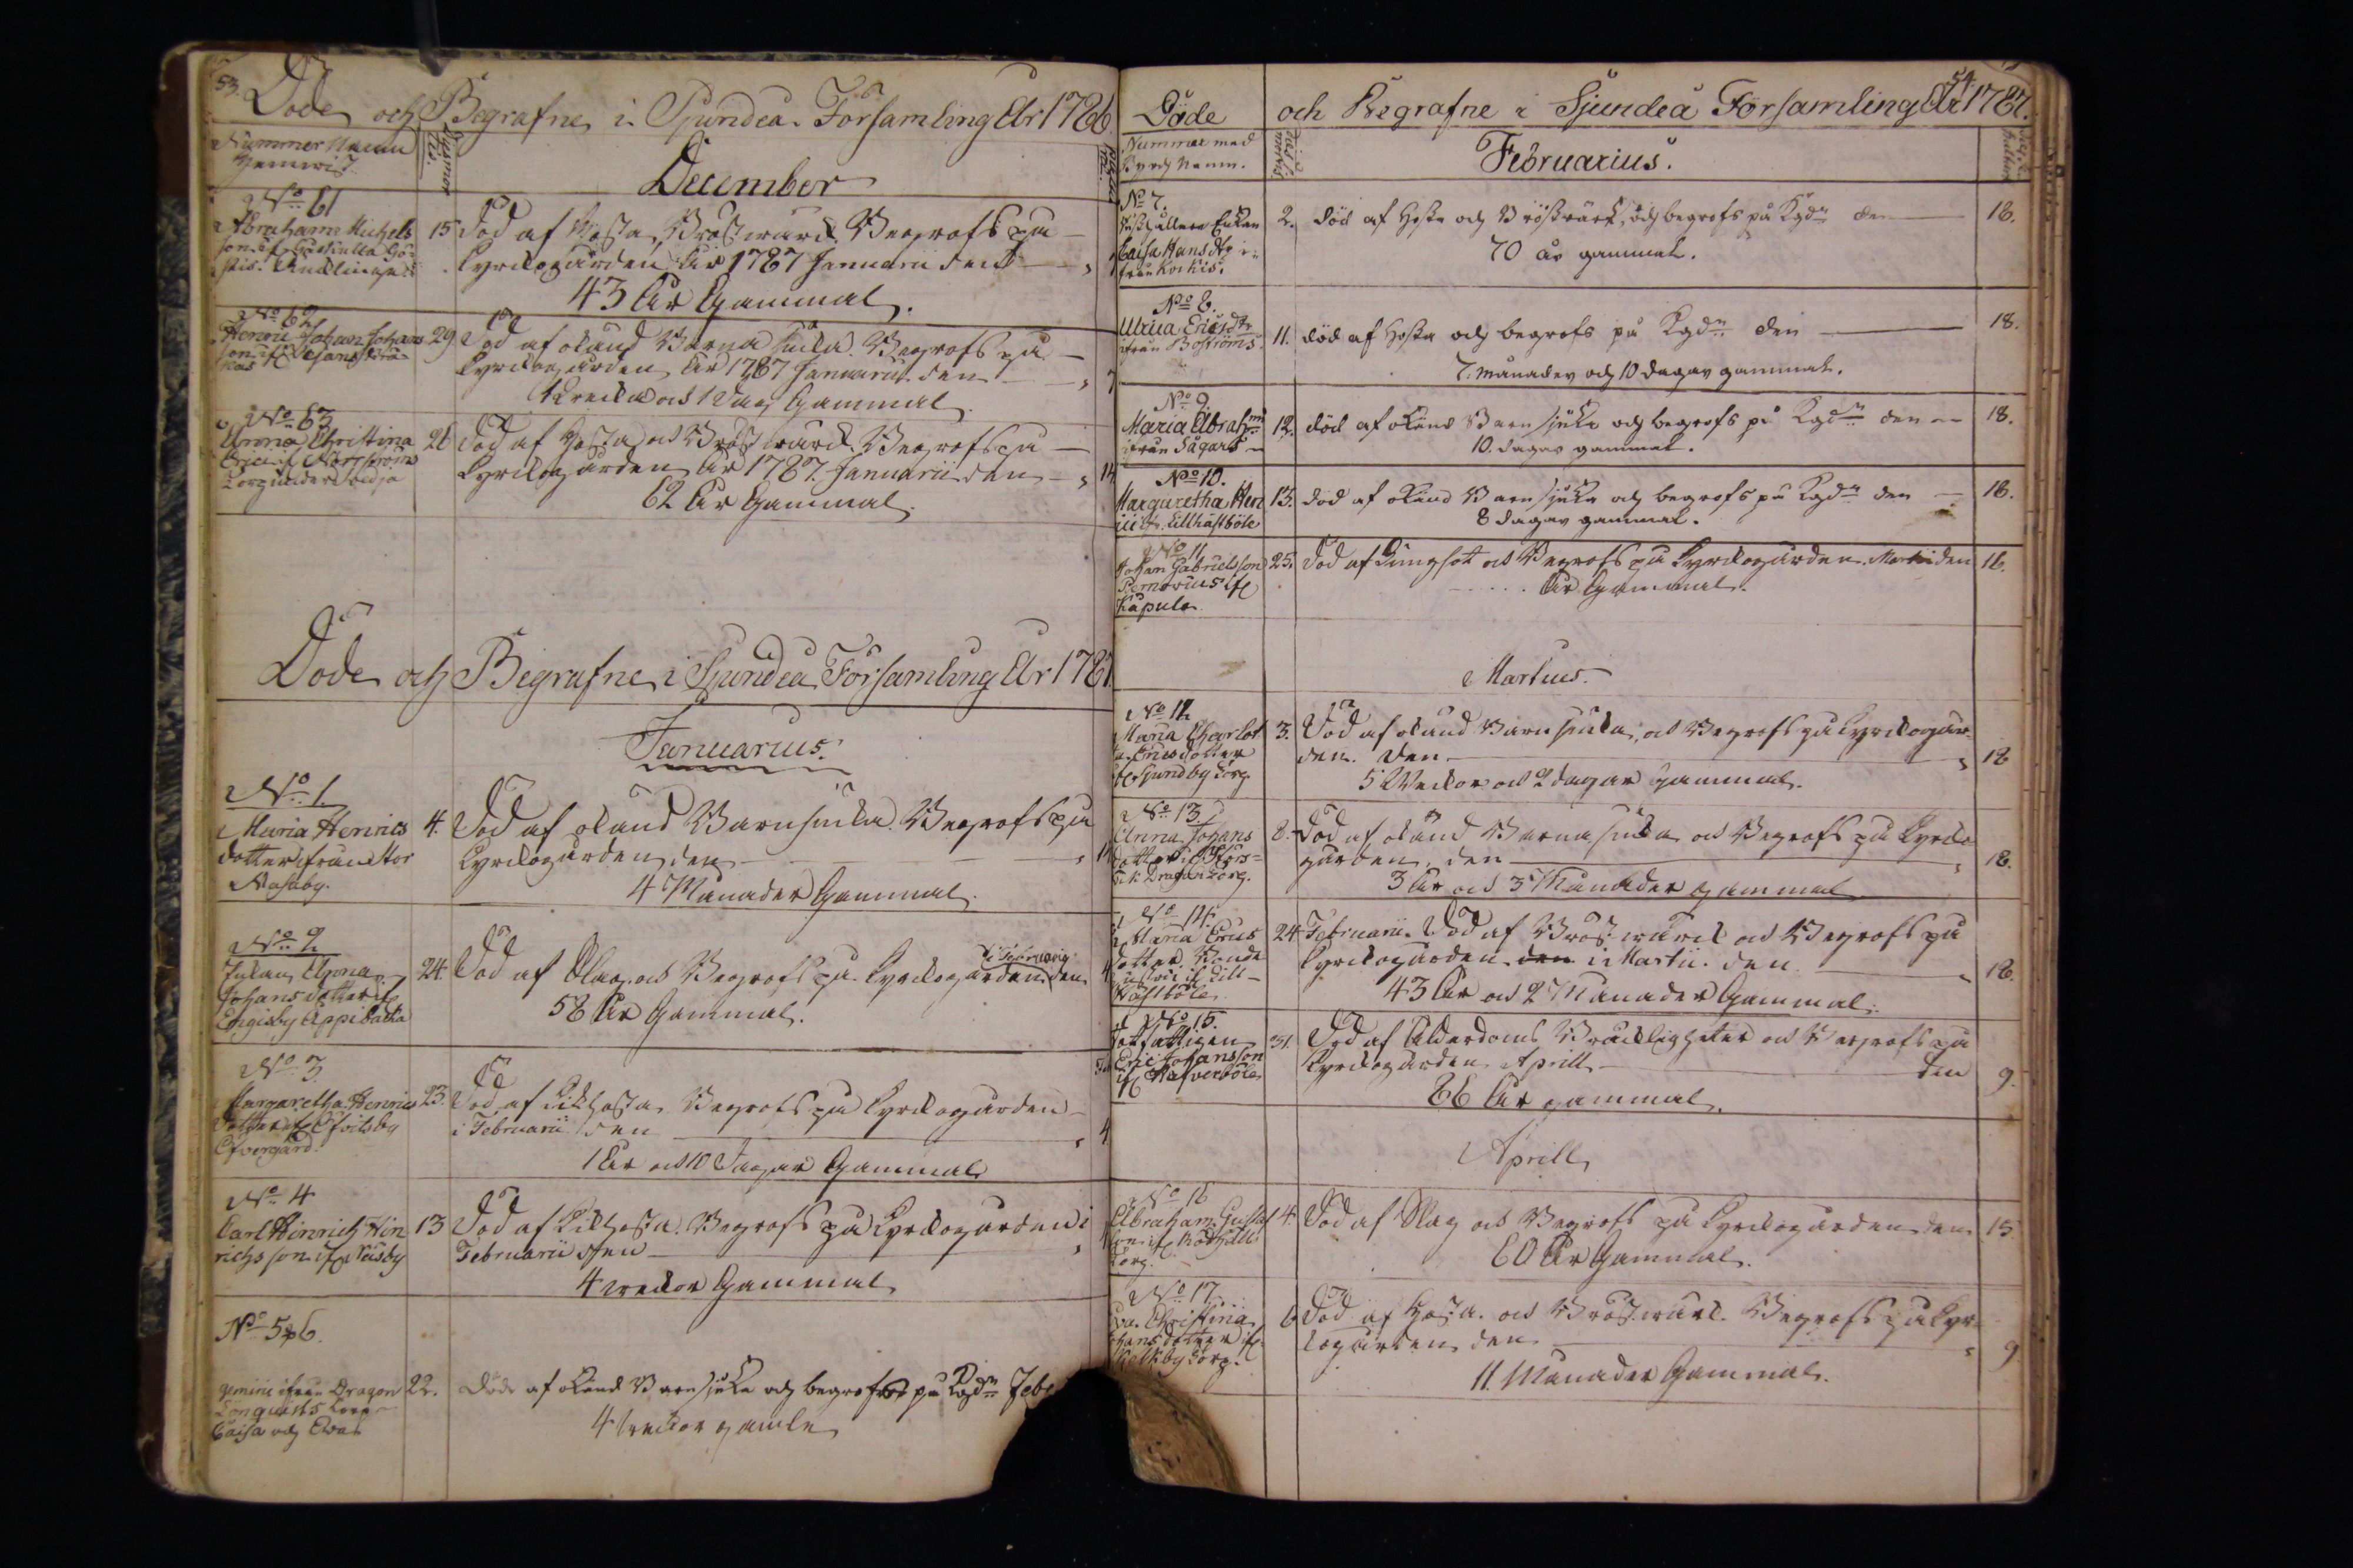 53.
Döde och Begrafne i Sjundeå Församling År 1786
Nummer Namn
Hemvist
December
No 61
Abraham Michels
son
15 Död af Hosta, Bröstwärk. Begrofs på
Kyrkogården År 1787 Januarii den
43 År Gammal.
No 62
Henric Johan Johans
son
29 Död af okänd Barnasiuka. Begrofs på
Kyrkogården År 1787 Januarii den 7
1 Wecka och 1 Dag Gammal
No 63
Anna Christina
26 Död af Hosta och Bröstwärk. Begrofs på
Kyrkogården År 1787. Januarii den 14
62 År Gammal.
Döde och Begrafne i Sjundeå Församling År 1787.
Januarius.
No 1.
Maria Henrics
dotter ifrån Stor
Nasaby.
4. Död af okänd Barnsiuka. Begrofs på
Kyrkogården den 14
4 Månader Gammal.
No 2
Enkan Anna
Johans dotter if
Engisby Appebacka
24. Död af Slag och Begrofs på Kyrkogården i Februarii den 4
58 År Gammal.
No 3.
Margaretha Henrics
dotter if
Öfvergård.
23. Död af Kikhosta Begrofs på Kyrkogården
i Februarii den 4
1 År och 10 Dagar Gammal
No 4
Carl Hinrich Hin
richs son if Näsby
13 Död af Kikhosta. Begrofs på Kyrkogården i
Februarii den
4 weckor Gammal
No 5 & 6.
gemini ifrån Dragon
Lönquists Torp
Caisa och Eva
22. döde af okänd Barnsjuka och begrofvos på Kgdn Feb
4 weckor gamle
54
Döde och Begrafne i Sjundeå Församling År 1787.
Nummer med
Namn.
Februarius.
No 7.
Enkan
Caisa Hansdtr i
från Korkis.
2. död af Hosta och Bröstwärk, och begrofs på Kgdn den 18.
70 år gammal.
No 8.
Ulrica Ericsdtr
ifrån Boströms
11. död af Hosta och begrofs på Kgdn den 18.
7. månader och 10 dagar gammal.
No 9.
Maria Abrahms
ifrån Sågars
12. död af okänd Barnsjuka och begrofs på Kgdn den 18.
10. dagar gammal.
No 10.
Margaretha Hen
if. Lillhästböle
13. död af okänd Barnsjuka och begrofs på Kgdn den 18.
8 dagar gammal.
No 11
Johan Gabrielsson
Pernovius if
Kåpula
25. Död af Lungsot och Begrofs på Kyrkogården Martii den 16.
År Gammal.
Martius.
No 12
Maria Charlot
ta Erics dotter
if Sjundby Torp.
3. Död af okänd Barnsiuka, och Begrofs på Kyrkogår
den. den 18
5 Weckor och 2 dagar Gammal.
No 13
Anna Johans
dotter if
Dragon Torp.
8. Död af okänd Barnasiuka och Begrofs på Kyrko
gården, den 18.
3 År och 3 Månader gammal
No 14
Maria Erics
dotter Bonde
if Lill
hästböle
24 Februarii. Död af Bröstwärk och Begrofs på
Kyrkogården den i Martii. den 18.
43 År och 2 Månader Gammal.
No 15.
Fattigen
Eric Johansson
if Hafverböle
31. Död af Ålderdoms Bräckligheter och Begrofs på
Kyrkogården Aprill den 9.
86 År gammal.
Aprill
No 16
Abraham Gustaf
son if
Torp.
4 Död af Slag och Begrofs på Kyrkogården den 15
60 År Gammal.
No 17.
Eva Christina
Johans dotter if
Kalkby Torp.
6 Död af Hosta. och Bröstwärk. Begrofs på Kyr
kogården den 9
11. Månader Gammal.